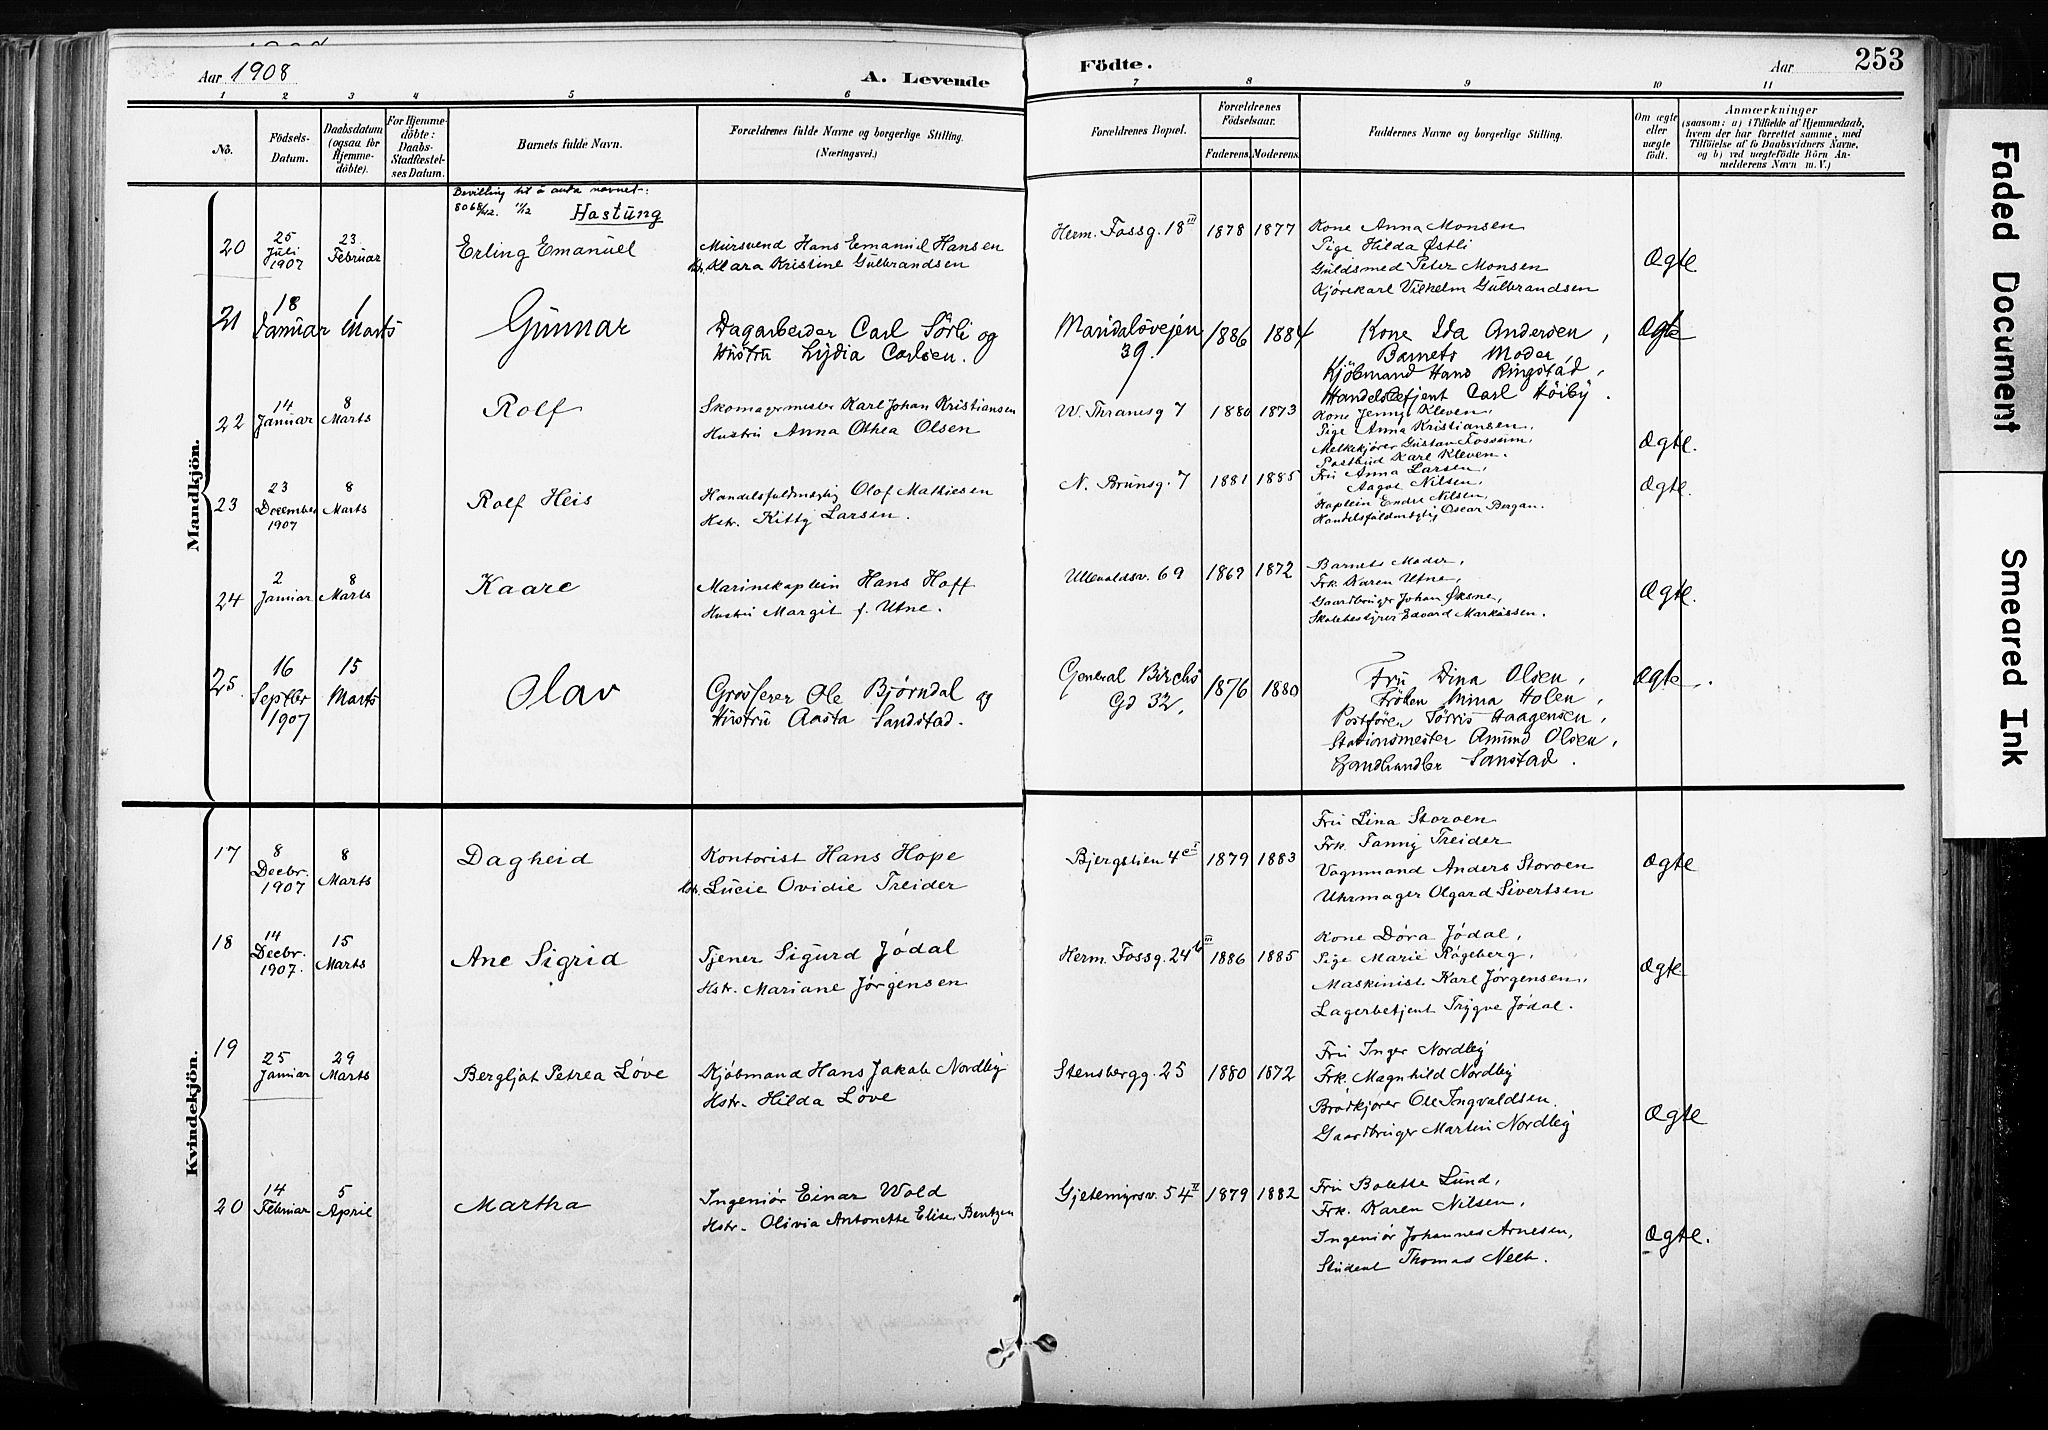 Aar 1908
A. Levende
Födte.
Aar
253
1 2 3 4 5 6 7 8 9 10 11
No.
Födsels-Datum.
Daabsdatum (ogsaa for Hjemme-döbte).
For Hjemme-döbte: Daabs-Stadfæstel-ses Datum.
Barnets fulde Navn.
Forældrenes fulde Navne og borgerlige Stilling.
(Næringsvei.)
Forældrenes Bopæl.
Forældrenes Födselsaar.
Faderens. Moderens.
Faddernes Navne og borgerlige Stilling.
Om ægte eller uægte födt.
Anmærkninger
(saasom: a) i Tilfælde af Hjemmedaab, hvem der har forrettet samme, med Tilföielse af to Daabsvidners Navne, og b) ved uegtefödte Börn Anmelderens Navn m. V.)
Mandkjön.
Bevilling til å anta navnet:
8068/42. 11/12 Hastung
20
25 Juli 1907
23 Februar
Erling Emanuel
Mursvend Hans Emanuel Hansen
Hstr. Klara Kristine Gulbrandsen
Herm. Fossg. 18 III
1878 1877
Kone Anna Monsen
Pige Hilda Østli
Guldsmed Peter Monsen
Kjørekarl Vilhelm Gulbrandsen
Ægte
21
18 Januar
1 Marts
Gunnar
Dagarbeider Carl Sörli og
Hustru Lydia Carlsen.
Maridalsvejen 39.
1886 1884
Kone Ida Andersen,
Barnets Moder,
Kjöbmand Hans Ringstad,
Handelsbetjent Carl Höiby.
Ægte
22
14 Januar
8 Marts
Rolf
Skomagermester Karl Johan Kristiansen
Hustru Anna Othea Olsen
W. Thranesg 7
1880 1873
Kone Jenny Kleven,
Pige Anna Kristiansen,
Melkekjører Gustav Fossum,
Postbud Karl Kleven.
Ægte.
23
23 December 1907
8 Marts
Rolf Heis
Handelsfuldmægtig Olof Mathiesen
Hstr. Kitty Larsen.
N. Brunsg. 7
1881 1885
Fru Anna Larsen,
Aagot Nilsen,
Kaptein Endre Nilsen,
Handelsfuldmægtig Oscar Bergan.
Ægte.
24
2 Januar
8 Marts
Kaare
Marinekaptein Hans Hoff
Hustru Margit f. Utne.
Ullevoldsv. 69
1869 1872
Barnets Moder,
Frk. Karen Utne,
Gaardbruger Johan Øksne,
Skolebestyrer Edvard Markussen.
Ægte.
25.
16 Septbr 1907
15 Marts
Olav
Grosserer Ole Bjørndal og
Hustru Aasta Sandstad.
General Birchs Gd 32.
1876 1880
Fru Dina Olsen,
Fröken Mina Holen,
Postfören Törris Haagensen,
Stationsmester Amund Olsen,
Sanstad.
Ægte.
Kvindekjön.
17
8 Decbr. 1907
8 Marts
Dagheid
Kontorist Hans Hope
Hstr. Lucie Ovidie Treider
Bjergstien 4 c I
1879 1883
Fru Lina Storoen
Frk. Fanny Treider
Vognmand Anders Storoen
Uhrmager Olgard Sivertsen
Ægte
18
14 Decbr. 1907.
15 Marts
Ane Sigrid
Tjener Sigurd Jódal
Hstr. Mariane Jórgensen
Herm. Fossg. 24 b III
1886 1885
Kone Dóra Jódal,
Pige Marie Rógeberg,
Maskinist Karl Jórgensen,
Lagerbetjent Trygve Jódal.
Ægte
19
25 Januar
29 Marts
Bergljot Petrea Lóve
Kjóbmand Hans Jakob Nordby
Hstr. Hilda Lóve
Stensbergg. 25
1880 1872
Fru Inger Nordby
Frk. Magnhild Nordby
Brødkjører Ole Ingvaldsen.
Gaardbruger Martin Nordby
Ægte
20
14 Februar
5 April
Martha
Ingeniór Einar Wold
Hstr. Olivia Antonette Elise Bentzen
Gjetemyrsv. 54 II
1879 1882
Fru Bolette Lund,
Frk. Karen Nilsen,
Ingeniór Johannes Arnesen,
Student Thomas
Ægte.
Faded Document
Smeared Ink